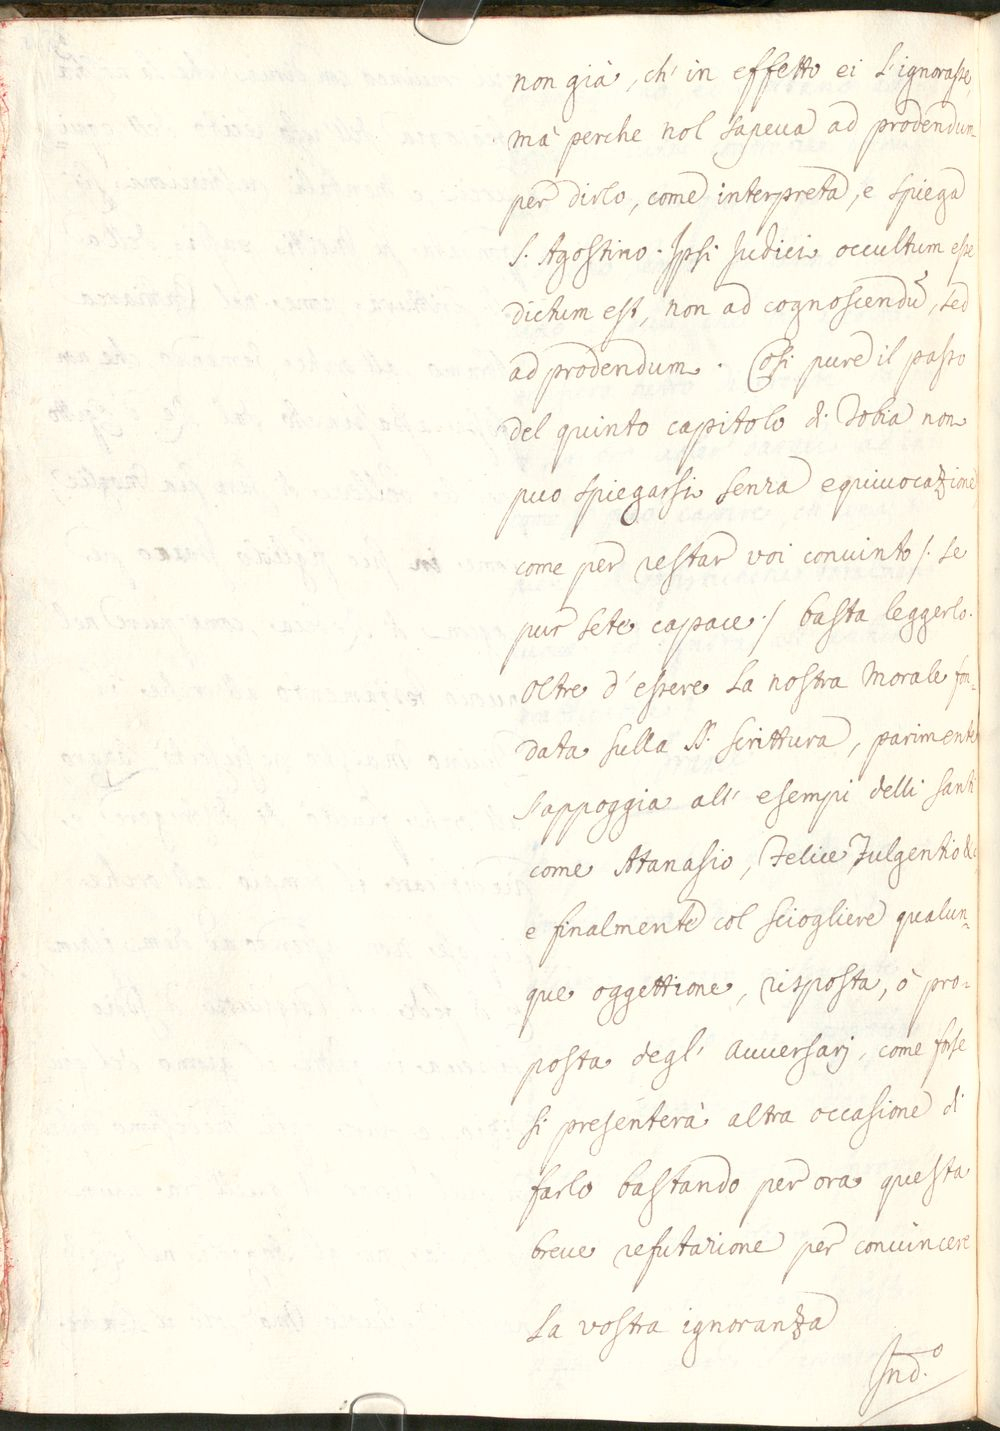 non già, ch' in effetto ei l'ignorasse,
mà perche nol sapeua ad prodendum
per dirlo, come interpreta, e spiega
S. Agostino. Ipsi Judici occultum esse
dictum est, non ad cognoscendũ, sed
ad prodendum. Così pure il passo
del quinto capitolo di Tobia non
puo spiegarsi senza equiuocazione
come per restar voi conuinto /. se
pur sete capace ./ basta leggerlo.
Oltre d'essere la nostra Morale fon=
data sulla S. Scrittura, parimente
s'appoggia all' esempi delli Santi
come Atanasio, Felice Fulgentio &c
e finalmente col sciogliere qualun=
que oggettione, risposta, ò pro=
posta degl' Auuersarj, come forse
si presenterà altra occasione di
farlo bastando per ora questa
breue refutazione per conuincere
la vostra ignoranza